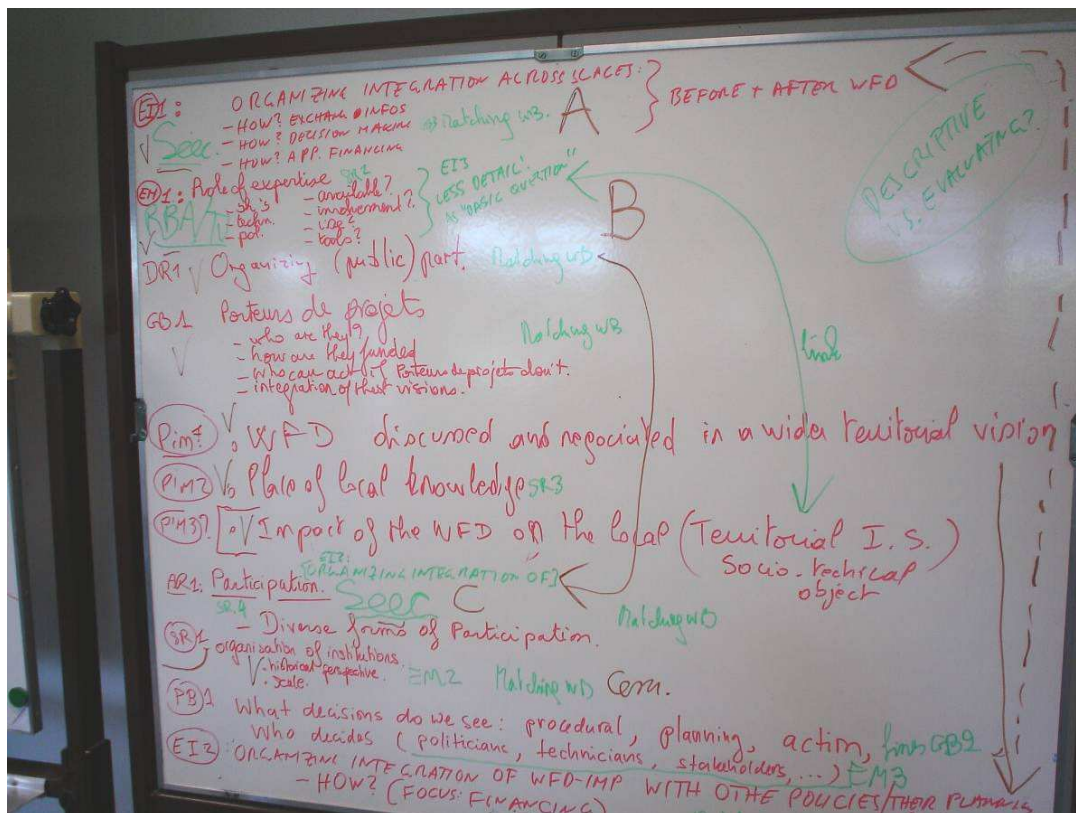 EI1: ORGANIZING INTEGRATION ACROSS SCALES:
- HOW? EXCHANGE INFOS
- HOW? DECISION MAKING
- HOW? APP. FINANCING
Matching WB. A
BEFORE + AFTER WFD
Seec.
DESCRIPTIVE
VS. EVALUATING?
EM1: Role of expertise SR2
- sh's - available?
- techn. - involvement?
- pol. - use?
- tools?
EI3
LESS DETAIL:
AS "BASIC QUESTION"
B
DR1 Organizing (public) part. Matching WB
GB1 Porteurs de projets
- who are they?
- how are they funded
- Who can act if Porteurs de projets don't.
- integration of their visions.
Matching WB
link
Pim1: WFD discussed and negociated in a wider territorial vision
PIM2 Place of local knowledge SR3
PIM3? Impact of the WFD on the local (Territorial I.S.)
Socio-technical
object
EI2:
[ORGANIZING INTEGRATION OF]
AR1: Participation. Seec C
SR4
- Diverse forms of Participation.
Matching WB
SR1 organisation of institutions.
. historical perspective
. scale.
EM2 Matching WB Cem.
PB1 What decisions do we see: procedural, planning, action, GB2
Who decides (politicians, technicians, stakeholders, ...) EM3
EI2: ORGANIZING INTEGRATION OF WFD-IMP WITH OTHE POLICIES/THER PLANNING
- HOW? (FOCUS: FINANCING)